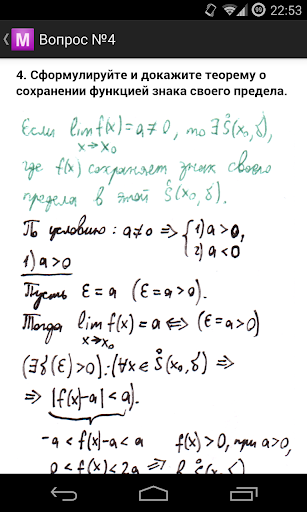 22:53
M Вопрос №4
4. Сформулируйте и докажите теорему о
сохранении функцией знака своего предела.
Если lim f(x) = a ≠ 0, то ∃ S̊(x₀, δ),
x→x₀
где f(x) сохраняет знак своего
предела в этой S̊(x₀, δ).
По условию: a≠0 ⇒ { 1) a>0,
2) a<0
1) a>0
Пусть ε = a (ε = a>0).
Тогда lim f(x) = a ⇔ (ε = a>0)
x→x₀
(∃ δ(ε) >0): (∀x ∈ S̊(x₀, δ) ⇒
⇒ |f(x)-a| < a).
-a < f(x)-a < a f(x)>0, при a>0,
0 < f(x) < 2a ⇒